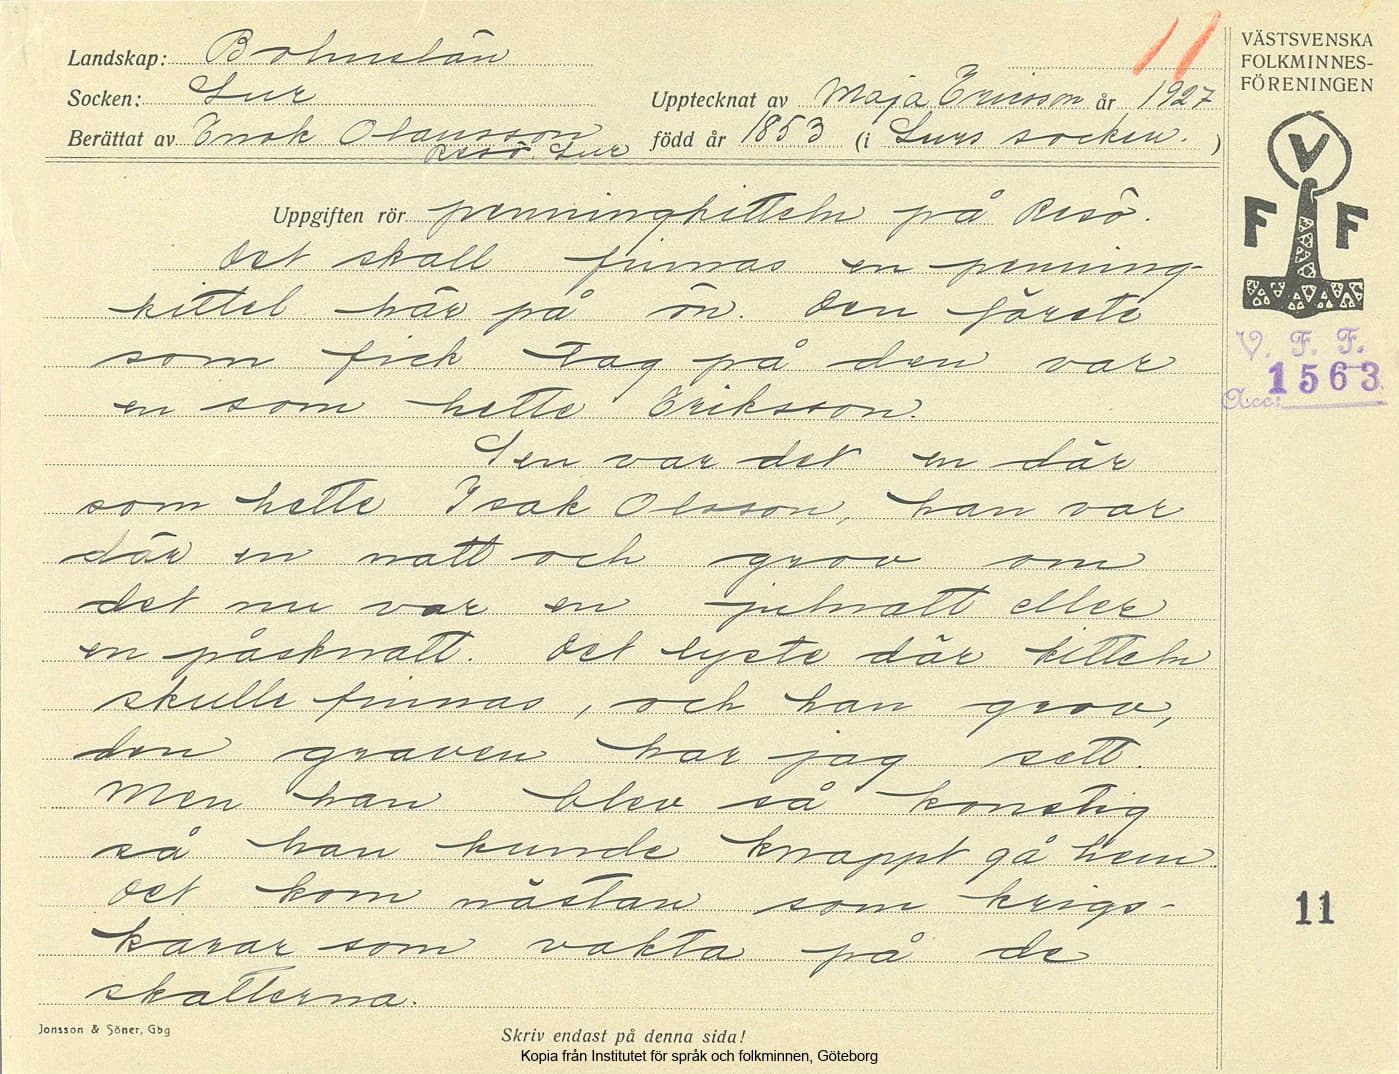 11
Landskap: Bohuslän
Socken: Lur
Upptecknat av Maja Ericsson år 1927
Berättat av Enok Olausson
Resö. Lur
född år 1853 (i Lurs socken. )
VÄSTSVENSKA
FOLKMINNES-
FÖRENINGEN
V
F F
V. F. F.
1563
Acc:
Uppgiften rör penningkitteln på Resö.
Det skall finnas en penning-
kittel här på ön. Den förste
som fick tag på den var
en som hette Eriksson.
Sen var det en där
som hette Isak Olsson, han var
där en natt och grov om
det nu var en julnatt eller
en påsknatt. Det lyste där kitteln
skulle finnas, och han grov,
den graven har jag sett.
Men han blev så konstig
så han kunde knappt gå hem.
Det kom nästan som krigs-
karar som vakta på de
skatterna.
11
Jonsson & Söner, Gbg
Skriv endast på denna sida!
Kopia från Institutet för språk och folkminnen, Göteborg